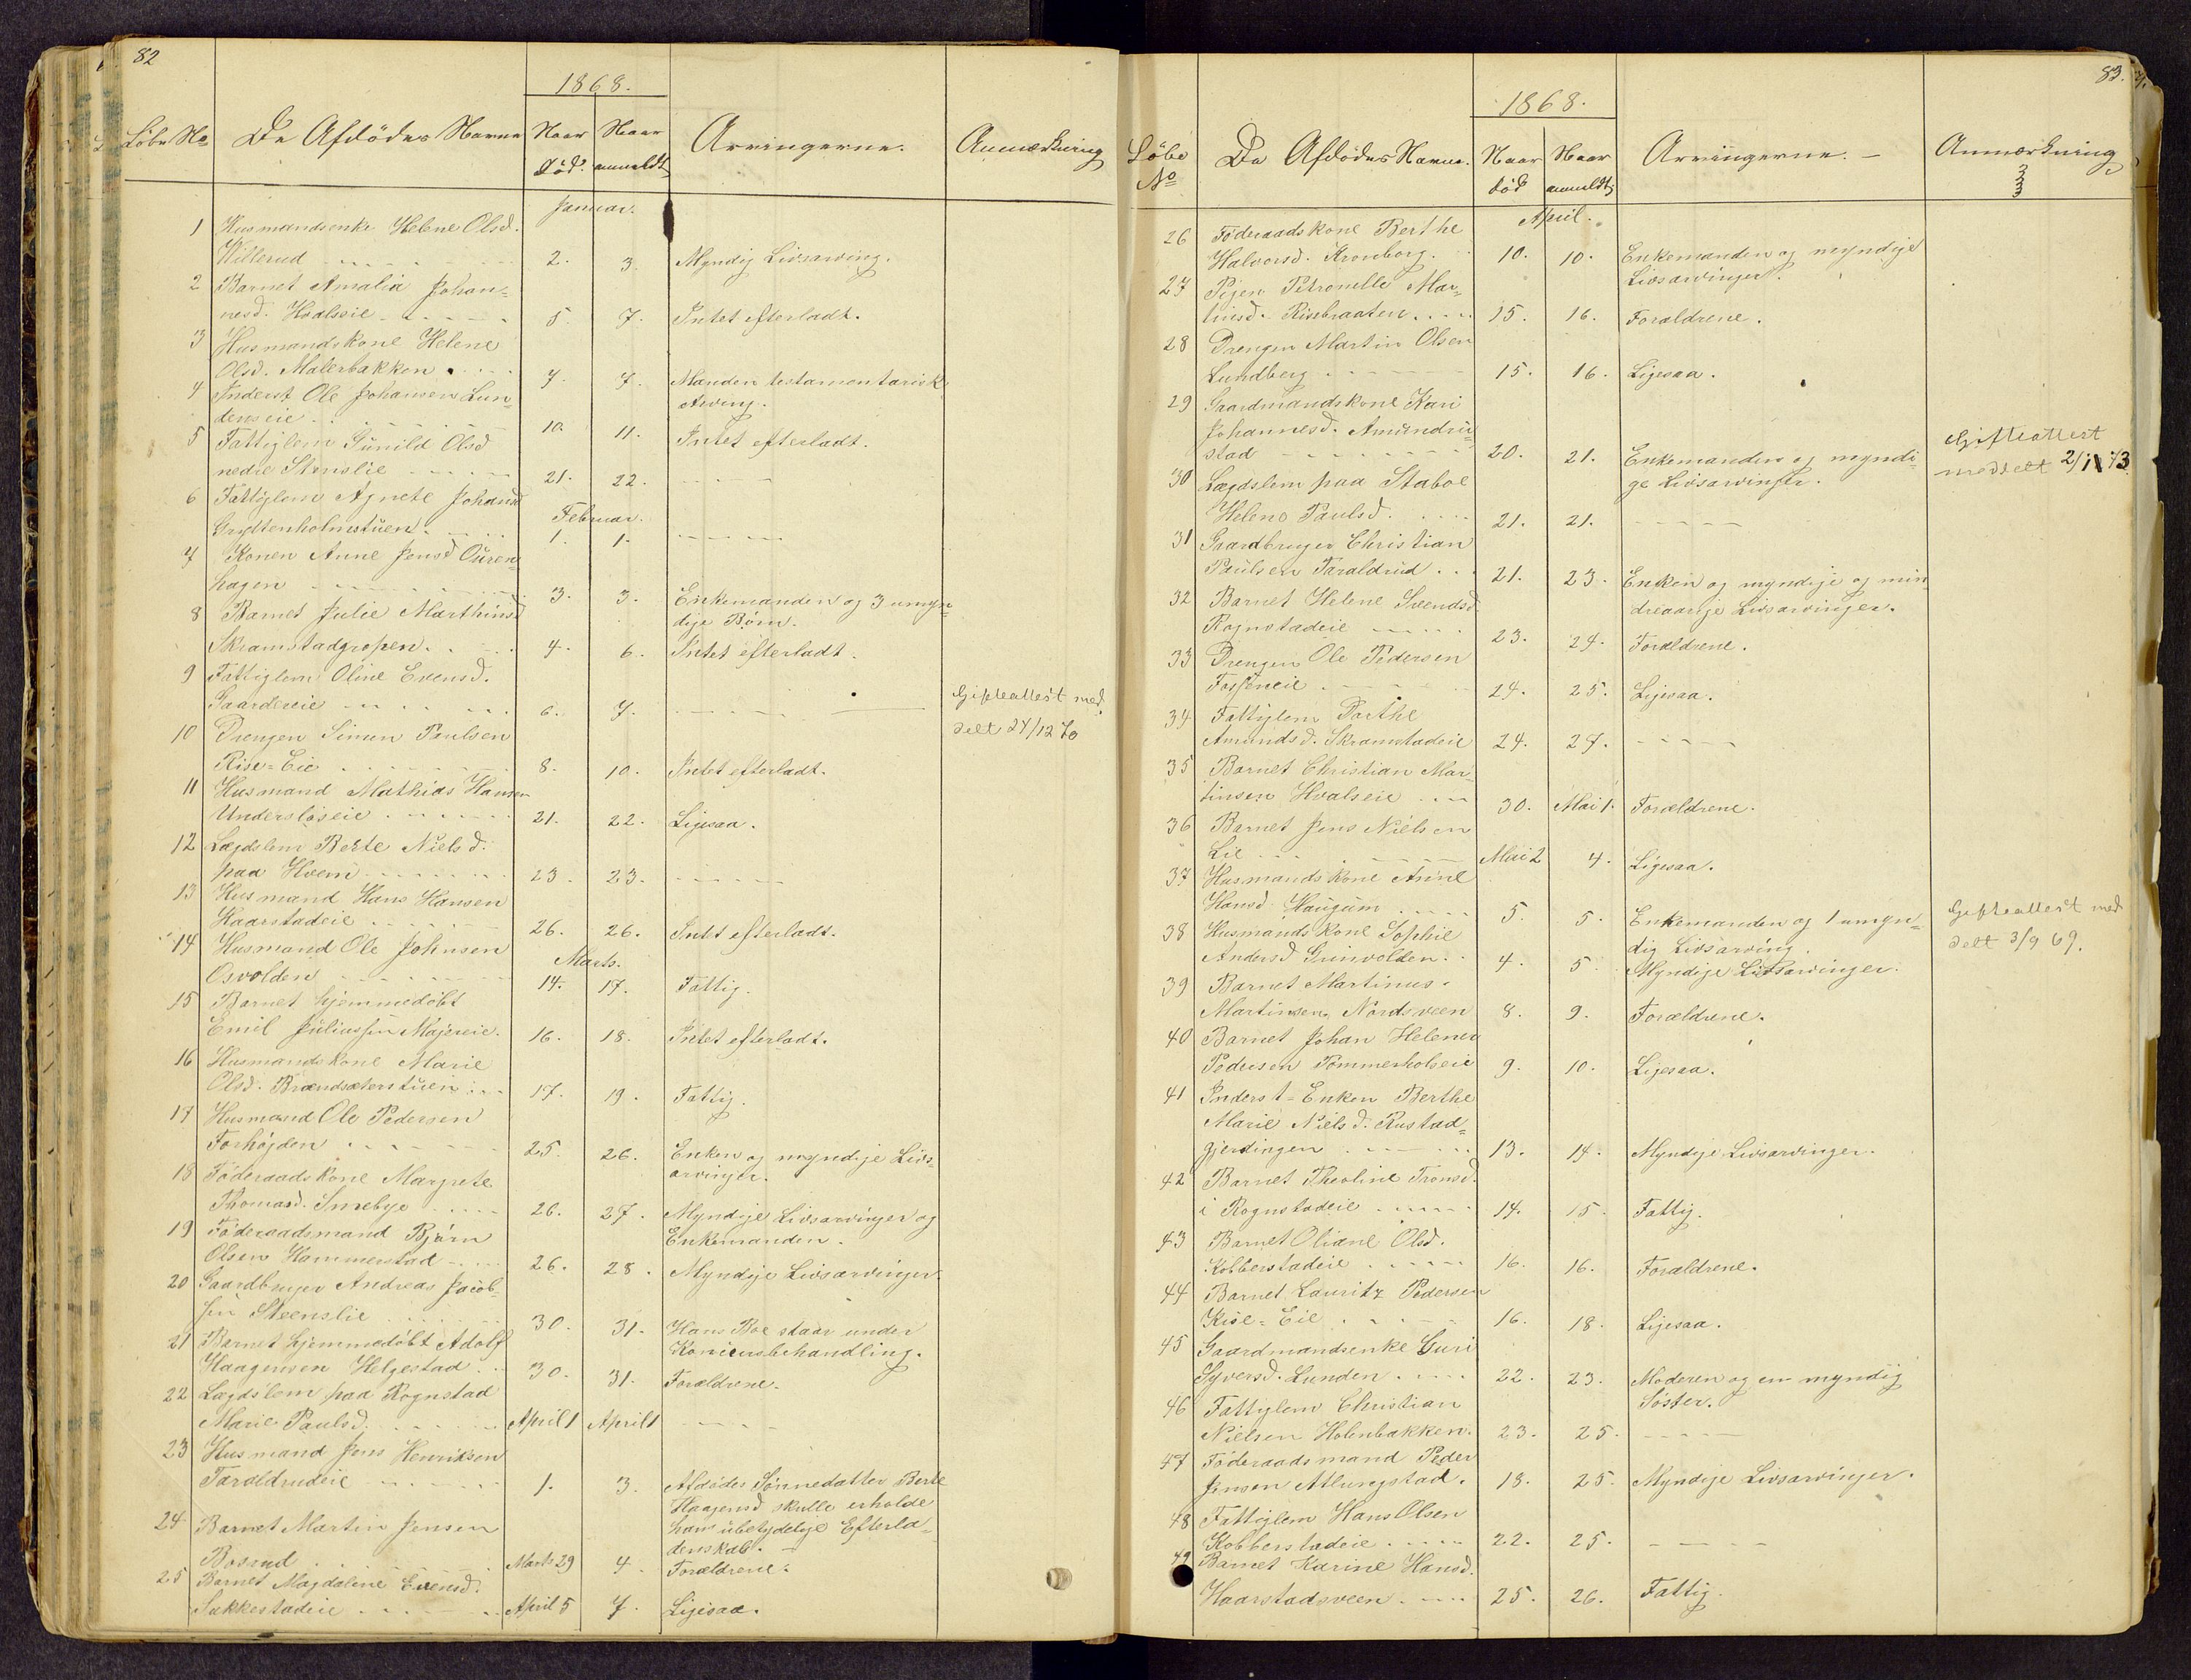 82
1868.
Löbe No De Afdödes Navne Naar död. Naar anmeldt Arvingerne. Anmærkning
Januar.
1 Husmandsenke Helene Olsd.
Willerud 2. 3. Myndig Livsarving.
2 Barnet Amalia Johan-
nesd. Hvalseie 5. 7. Intet efterladt.
3 Husmandskone Helene
Olsd. Malerbakken 7. 7. Manden testamentarisk
Arving.
4 Inderst Ole Johansen Lun-
denseie 10. 11. Intet efterladt.
5 Fattiglem Gunild Olsd
nedre Stenslie 21. 22. - - - -
6 Fattiglem Agnete Johansd
Februar.
Grydtenholmstuen. 1. 1. - - - -
7 Konen Anne Jensd Ouren-
hagen 3. 3. Enkemanden og 3 umyn-
dige Börn.
8 Barnet Julie Marthinsd
Skramstadgropen. 4. 6. Intet efterladt.
9 Fattiglem Oline Evensd.
Gaardereie 6. 7. - - - - Gifteattest med
delt 24/12 70
10 Drengen Simen Paulsen
Rise-Eie 8. 10. Intet efterladt.
11 Husmand Mathias Hansen
Undersloseie 21. 22. Ligesaa.
12 Lægdslem Berte Nielsd.
paa Hveni 23. 23. - - - -
13 Husmand Hans Hansen
Haarstadeie 26. 26. Intet efterladt.
Marts.
14 Husmand Ole Johnsen
Osvolden 14. 17. Fattig.
15 Barnet hjemmedöbt
Emil Juliussen Majereie. 16. 18. Intet efterladt.
16 Husmandskone Marie
Olsd. Brændsæterstuen 17. 19. Fattig.
17 Husmand Ole Pedersen
Forhöjden 25. 26. Enken og myndige Livs-
arvinger.
18 Föderaadskone Margrete
Thomasd. Smebye 26. 27. Myndige Livsarvinger og
Enkemanden.
19 Föderaadsmand Björn
Olsen Hammerstad 26. 28. Myndige Livsarvinger.
20 Gaardbruger Andreas Jacob-
sen Steenslie 30. 31. Hans Boe staar under
Konkursbehandling.
21 Barnet hjemmedöbt Adolf
Haagensen Helgestad 30. 31. Forældrene.
22 Lægdslem paa Rognstad
Marie Paulsd. April 1 April 1 - - - -
23 Husmand Jens Henriksen
Taraldrudeie 1. 3. Afdödes Sönnedatter Berte
Haagensd skulle erholde
hans ubetydelige Efterla-
denskab.
24 Barnet Martin Jensen
Bosrud Marts 29 4. Forældrene.
25 Barnet Magdalene Evensd.
Sukkestadeie April 5 7. Ligesaa.
83.
1868.
Löbe No De Afdödes Navne. Naar död Naar anmeldt Arvingerne. Anmærkning
April.
26 Föderaadskone Berthe
Halvorsd. Kronborg. 10. 10. Enkemanden og myndige
Livsarvinger.
27 Pigen Petronelle Mar-
tinsd. Risbraaten 15. 16. Forældrene.
28 Drengen Martin Olsen
Lundberg 15. 16. Ligesaa.
29 Gaardmandskone Kari
Johannesd. Amundru-
stad 20. 21. Enkemanden og myndi-
ge Livsarvinger. Gifteattest
meddelt 2/11 73
30 Lægdslem paa Staboe
Helene Paulsd. 21. 21. - - - -
31 Gaardbruger Christian
Paulsen Taraldrud 21. 23. Enken og myndige og min
dreaarige Livsarvinger.
32 Barnet Helene Svendsd.
Rognstadeie 23. 24. Forældrene.
33 Drengen Ole Pedersen
Fosseneie 24. 25. Ligesaa.
34 Fattiglem Parthe
Amundsd. Skramstadeie 24. 27. - - - -
35 Barnet Christian Mar-
tinsen Hvalseie 30. Mai 1. Forældrene.
36 Barnet Jens Nielsen
Lie Mai 2 4. Ligesaa.
37 Husmandskone Anne
Hansd. Haugum 5. 5. Enkemanden og 1 umyn-
dig Livsarving. Gifteattest med
delt 3/9 69.
38 Husmandskone Sophie
Andersd Grinvolden. 4. 5. Myndige Livsarvinger.
39 Barnet Martinus
Martinsen Nordsveen 8. 9. Forældrene.
40 Barnet Johan Helener
Pedersen Pommerholseie 9. 10. Ligesaa.
41 Inderst-Enken Berthe
Marie Nielsd. Rustad-
gjerdingen 13. 14. Myndige Livsarvinger.
42 Barnet Theoline Tronsd.
i Rognstadeie 14. 15. Fattig.
43 Barnet Oliane Olsd.
Kobberstadeie 16. 16. Forældrene.
44 Barnet Lauritz Pedersen
Rise-Eie 16. 18. Ligesaa.
45 Gaardmandsenke Guri
Syversd. Lunden 22. 23. Moderen og en myndig
Söster.
46 Fattiglem Christian
Nielsen Holenbakken. 23. 25. - - - -
47 Föderaadsmand Peder
Jensen Atlungstad. 18. 25. Myndige Livsarvinger.
48 Fattiglem Hans Olsen
Kobberstadeie 22. 25. - - - -
49 Barnet Karine Hansd.
Haarstadsveen 25. 26. Fattig.